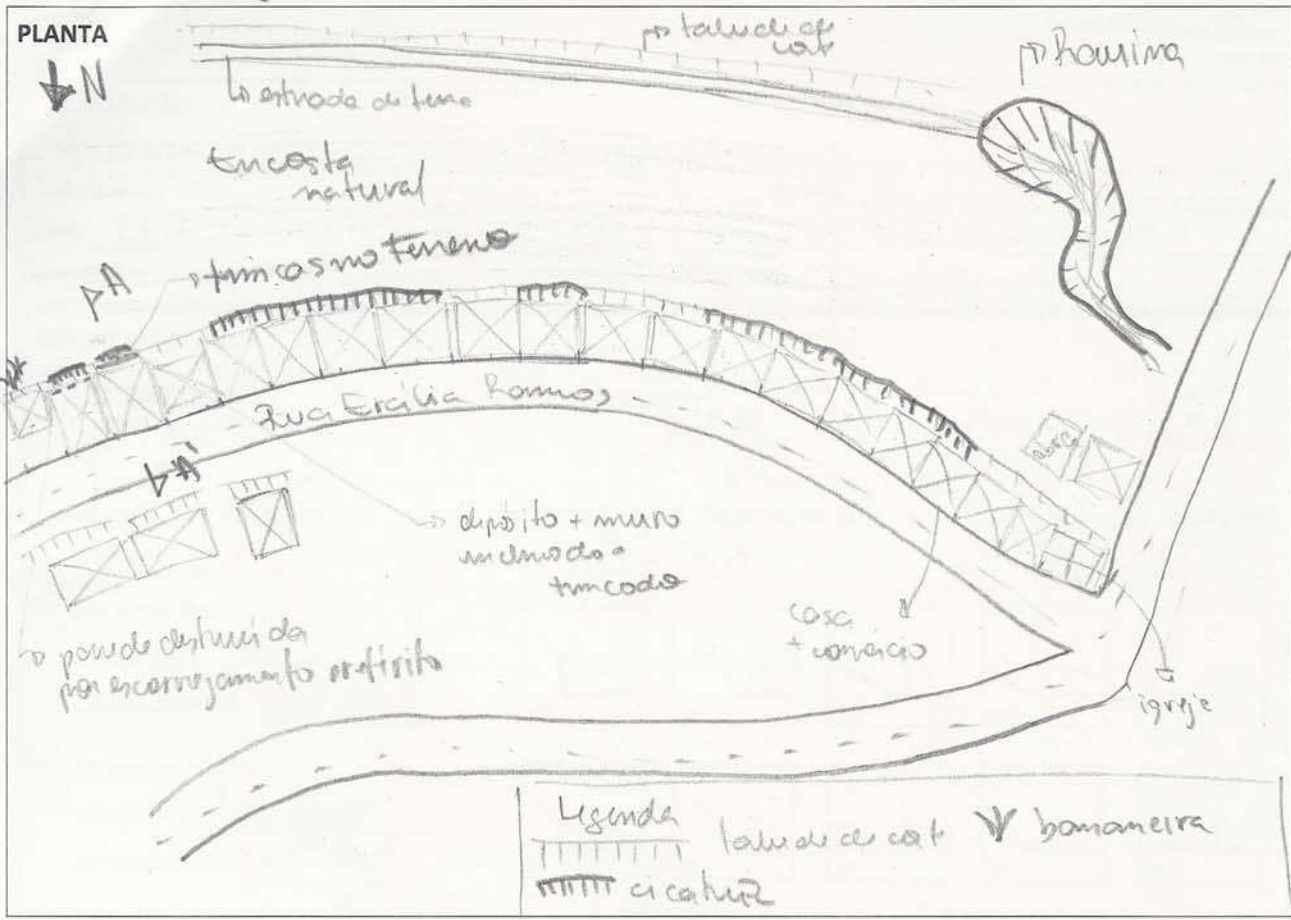 PLANTA
N
talude de
corte
Ravina
estrada de terra
Encosta
natural
trincas no terreno
A
Rua Ercília Ramos
A'
depósito + muro
inclinado e
trincado
casa
+ comércio
parede destruída
por escorregamento pretérito
igreja
Legenda
talude de corte
bananeira
cicatriz